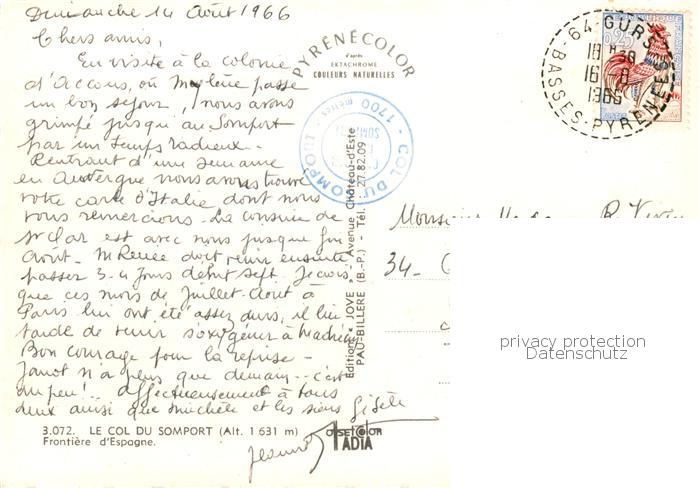 Dimanche 14 Août 1966
Chers amis,
En visite à la colonie
d'Accous, où Mylène passe
un bon séjour, nous avons
grimpé jusqu'au Somport
par un temps radieux -
Rentrant d'une semaine
en Auvergne nous avons trouvé
votre carte d'Italie dont nous
vous remercions - La cousine de
St Clar est avec nous jusque fin
Août - M Renée doit venir ensuite
passer 3-4 jours début sept. Je crois
que ces mois de Juillet-Août à
Paris lui ont été assez durs, il lui
tarde de venir s'oxygéner à
Bon courage pour la reprise -
Janot n'a plus que demain... c'est
un peu!.. Affectueusement à tous
deux ainsi que Michèle et les siens Gisèle
3.072. LE COL DU SOMPORT (Alt. 1631 m)
Frontière d'Espagne.
PYRÉNÉCOLOR
d'après
EKTACHROME
COULEURS NATURELLES
- COL DU SOMPORT - 1700 mètres
Editions « JOVE » - Avenue Château-d'Este
PAU-BILLERE (B.-P.) - Tél. : 27.82.09
OFFSET COLOR
IADIA
64-GURS
16 H 30
16-8
1966
-BASSES-PYRENEES
0,25
Monsieur
34-
privacy protection
Datenschutz